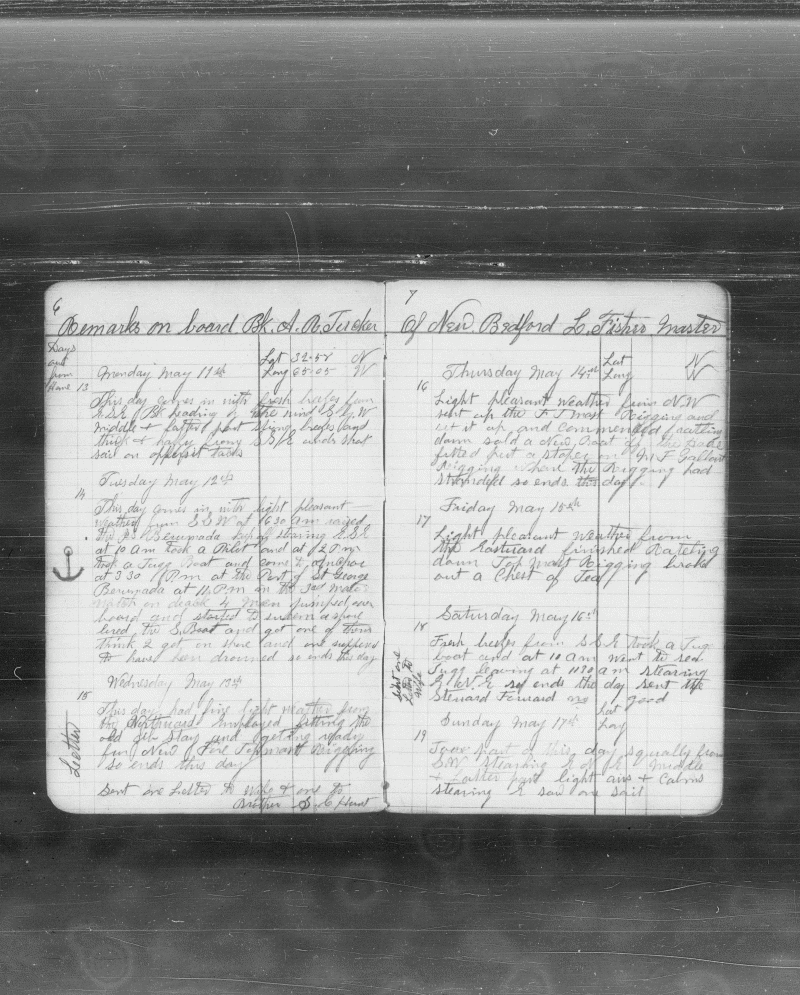 6
Remarks on board Bk. A. R. Tucker
Days
out
from
Home 13
Lat 32-58 N
Long 65-05 W
Monday May 11th
This day comes in with fresh breeze from
S.S.E. Bk heading by the wind S.W.
middle & latter part strong breeze and
thick & hazy from S.S.E. under short
sail on opposit tacks
Tuesday May 12th
14
This day comes in with light pleasant
weather from S.S.W at 6.30 Am raised
the Is Bermuda Laying stearing E.S.E
at 10 Am took a Pilot and at 12 P.m.
took a Tugg Boat and come to anchor
at 3.30 P.m at the Port of St George
Bermuda at 11. P.m in the 3rd Mates
watch on deack 4 Men jumped over
board and started to swim a shore
Lired the S. Boat and got one of them
think 2 got on shore and one suppens
to have ben drowned so ends this day
Wednesday May 13th
15
Letter
This day had fine light weather from
the Northward Employed fitting the
old Jib Stay and getting ready
for New Fore Topmast Rigging
so ends this day
Sent one Letter to wife & one to
Brother S. C. Hunt
7
Of New Bedford L. Fisher Master
Thursday May 14th
Lat N
Long W
16
Light pleasant weather from N.W
sent up the F.T Mast Rigging and
set it up and commenced ratling
down sold a New Boat
fitted put a stoper on M F Gallant
Rigging where the Rigging had
stranded so ends this day
Friday May 15th
17
Light pleasant weather from
the Eastward finished Rateling
down Top Mast Rigging broke
out a Chest of Tea
Saturday May 16th
18
Sent one
Letter to
wife
Fresh breeze from S.S.E took a Tug
boat and at 10 am went to sea
Tugg leaving at 11.30 am stearing
E.N.E so ends the day sent the
Steward Forward no good
Sunday May 17th
Lat
Long
19
Fore part of this day squally from
S.W. Stearing E N E Middle
& Latter part light airs & Calms
stearing E saw one sail